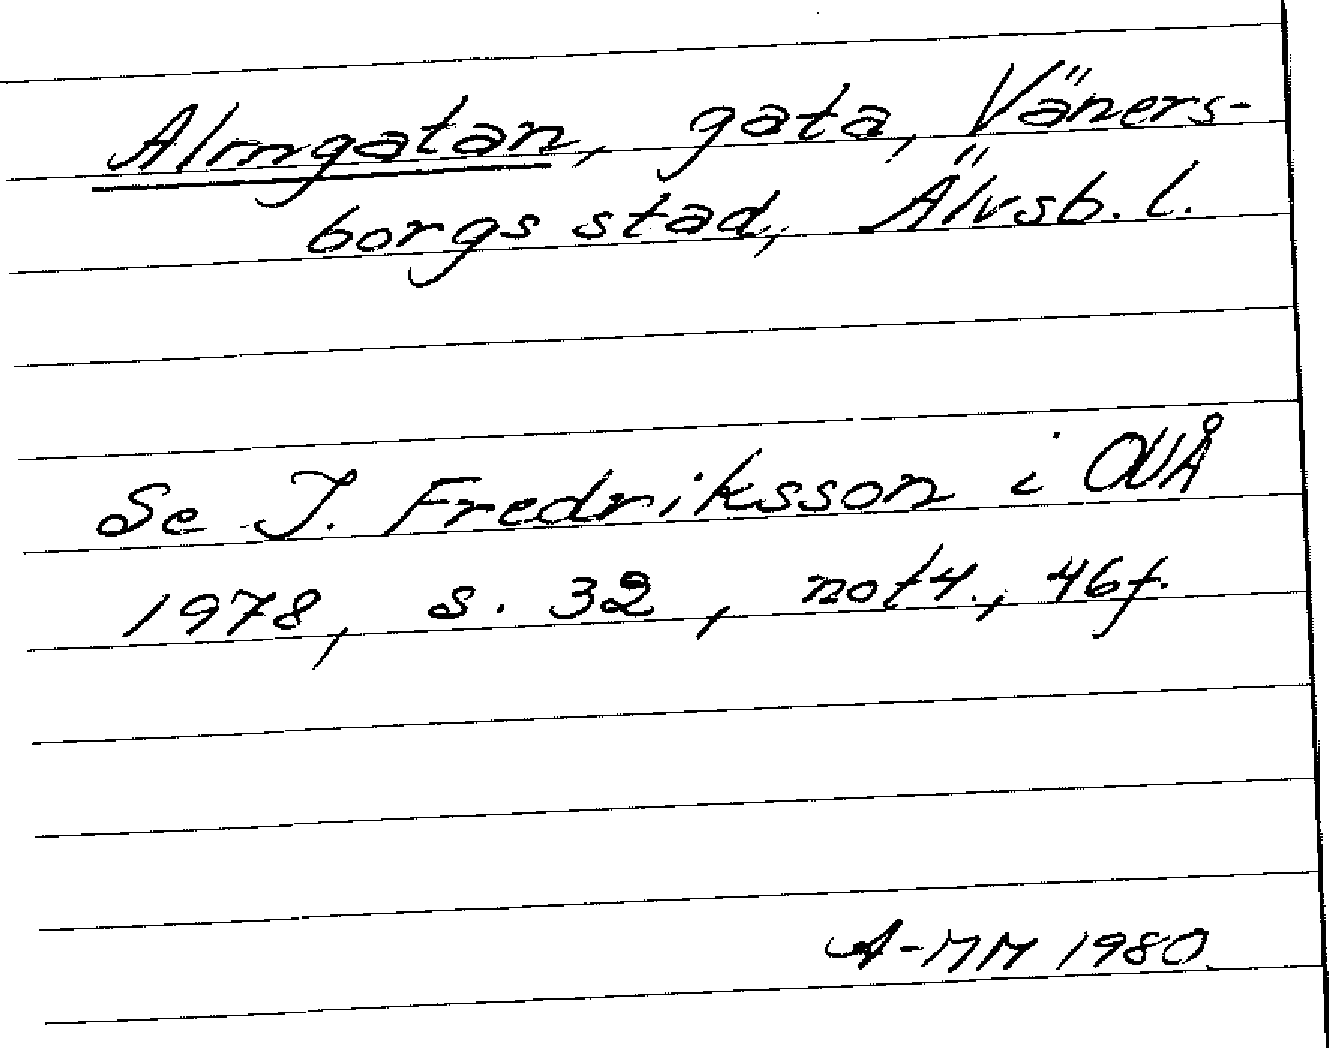 Almgatan, gata, Väners-
borgs stad, Älvsb. l.
Se I. Fredriksson i OUÅ
1978, s. 32, not 4., 46f.
A-MM 1980